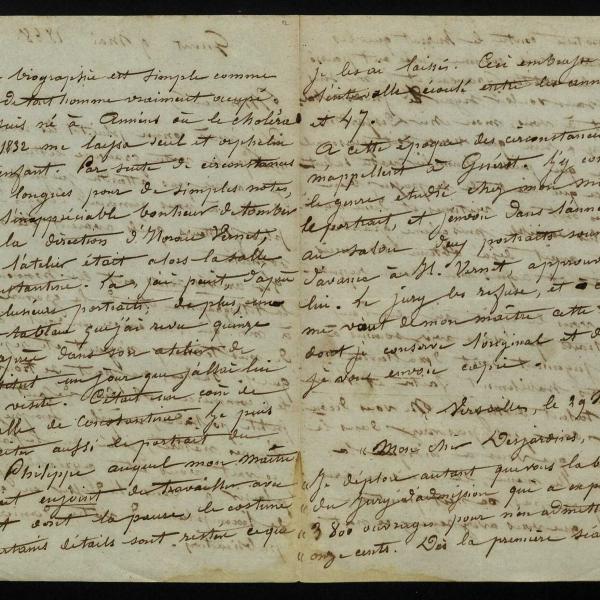 biographie est simple comme
de tout homme vraiment occupé.
suis né à Amiens où le choléra
1832 me laissa seul et orphelin
enfant. Par suite de circonstances
longues pour de simples notes,
l'inappréciable bonheur de tomber
la direction d'Horace Vernet,
l'atelier était alors la salle
Constantine. Là, j'ai peint d'après
plusieurs portraits, de plus, une
tableau que j'ai revu quinze
après dans son atelier de
un jour que j'allai lui
visite. C'était un coin de
de Constantine. Je puis
citer aussi le portrait du
Philippe auquel mon maître
enjoint de travailler avec
et dont la pause, le costume
certains détails sont restés ce que
je les ai laissés. Ceci embrasse
l'intervalle écoulé entre les années
et 47.
A cette époque des circonstances
m'appellent à Guéret. J'y con
le genre étudié chez mon maître
le portrait, et j'envoie dans l'année
au salon deux portraits soumis
d'avance à H. Vernet, approuvés
lui. Le jury les refuse, et
me vient de mon maître cette
dont je conserve l'original et d
je vous envoie copie.
Versailles, le 29
"Mon cher Desjardins,
"Je déplore autant que vous la b
"du jury d'admission qui a exp
"3 800 ouvrages pour n'en admettre
"onze cents. Dès la première séance